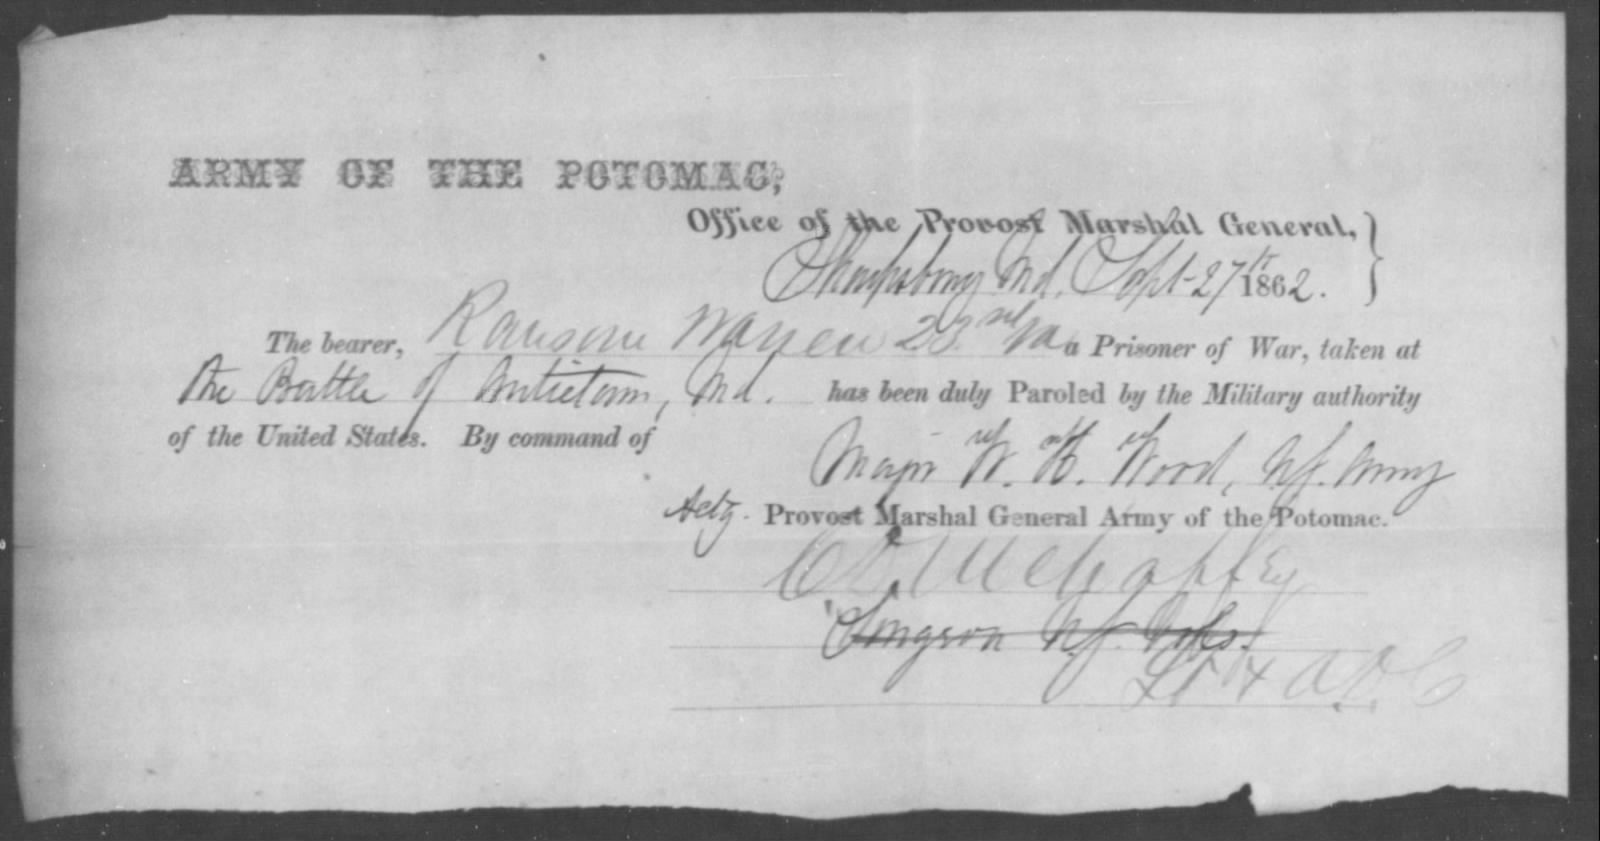 ARMY OF THE POTOMAC,
Office of the Provost Marshal General,
Sharpsburg Md. Sept 27th 1862.
The bearer, Ransom Warren 23rd a Prisoner of War, taken at
the Battle of Antietam, Md. has been duly Paroled by the Military authority
of the United States. By command of
Major W. H. Wood, U.S. Army
Actg. Provost Marshal General Army of the Potomac.
Mehaffey
Surgeon U.S. Vols.
Lt & A.D.C